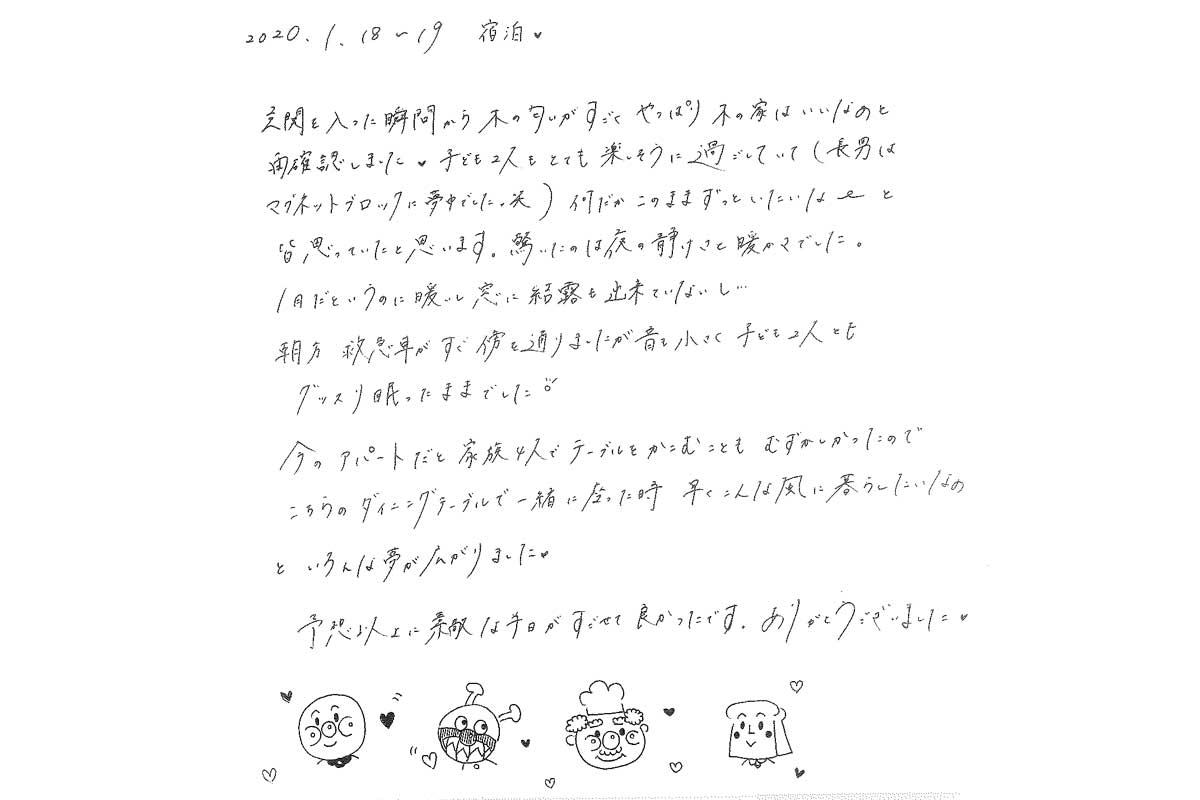 2020.1.18~19 宿泊♥
玄関を入った瞬間から木の匂いがすごく やっぱり木の家はいいなぁと
再確認しました♥子ども2人もとても楽しそうに過ごしていて(長男は
マグネットブロックに夢中でした。笑)何だかこのままずっといたいなぁ~と
皆思っていたと思います。驚いたのは夜の静けさと暖かさでした。
1月だというのに暖いし窓に結露も出来ていないし…
朝方 救急車がすぐ傍を通りましたが音も小さく子ども2人とも
グッスリ眠ったままでした
今のアパートだと家族4人でテーブルをかこむこともむずかしかったので
こちらのダイニングテーブルで一緒に座った時 早くこんな風に暮らしたいなぁ
といろんな夢が広がりました♥
予想以上に素敵な半日がすごせて良かったです。ありがとうございました♥